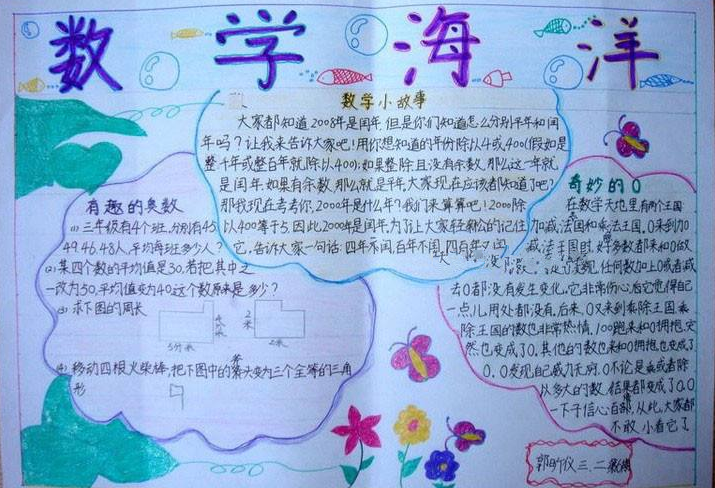 数学海洋
数学小故事
大家都知道2008年是闰年,但是你们知道怎么分别平年和闰
年吗?让我来告诉大家吧!用你想知道的年份除以4或400(假如是
整千年或整百年就除以400);如果整除且没有余数,那么这一年就
是闰年,如果有余数,那么就是平年,大家现在应该都知道了吧?
那我现在考考你,2000年是什么年?我们来算算吧!2000除
以400等于5,因此2000年是闰年,为了让大家轻松的记住
它,告诉大家一句话:四年一闰,百年不闰,四百年又闰
有趣的奥数
(1)三年级有4个班,分别有45
49.46.48人,平均每班多少人?
(2)某四个数的平均值是30,若把其中之
一改为50,平均值变为40,这个数原来是多少?
(3)求下图的周长
5分米
4分米
2米
2米
(4)移动四根火柴棒,把下图中的斧头变为三个全等的三角
形
奇妙的0
在数学天地里,有两个王国
加减法国和乘法王国,0来到加
减法王国时,好多数都来和0做
任何数加上0或者减
去0都没有发生变化,它非常伤心,后它觉得自己
一点儿用处都没有,后来,0又来到乘除王国,乘
除王国的数也非常热情,100跑来和0拥抱,突
然也变成了0,其他的数也来和0拥抱,也变成了
0,0发现自己威力无穷,0不论是乘或者除
从多大的数,结果都变成了0,0
一下子信心百部,从此,大家都
不敢小看它了
三、二